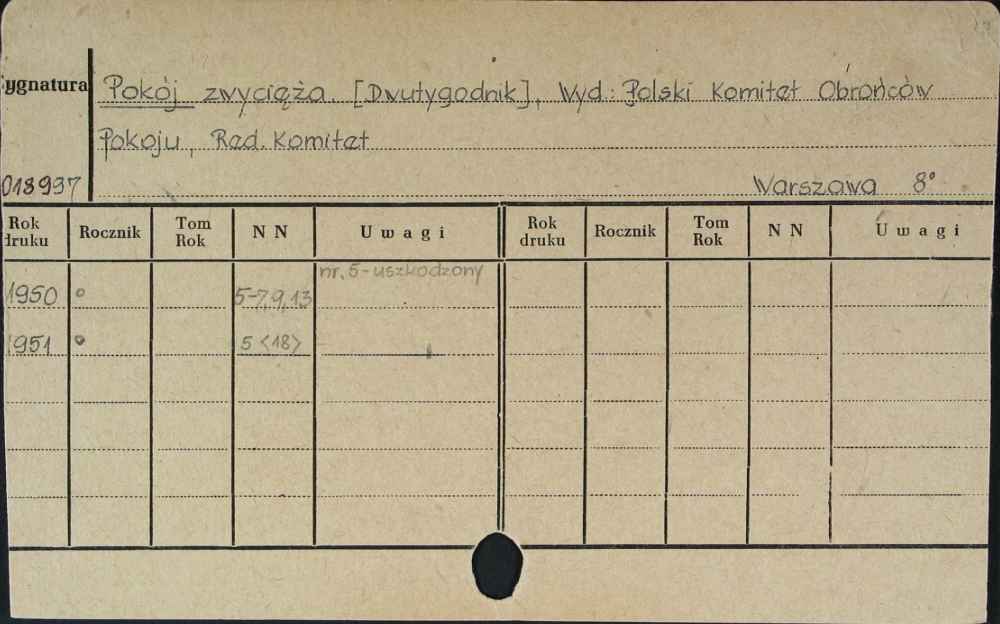 ygnatura Pokój zwycięża. [Dwutygodnik], Wyd: Polski Komitet Obrońców
Pokoju, Red. Komitet
018937 Warszawa 8°
Rok druku Rocznik Tom Rok N N Uwagi Rok druku Rocznik Tom Rok N N Uwagi
nr. 5-uszkodzony
1950 ° 5-7,9,13
1951 ° 5 <18>